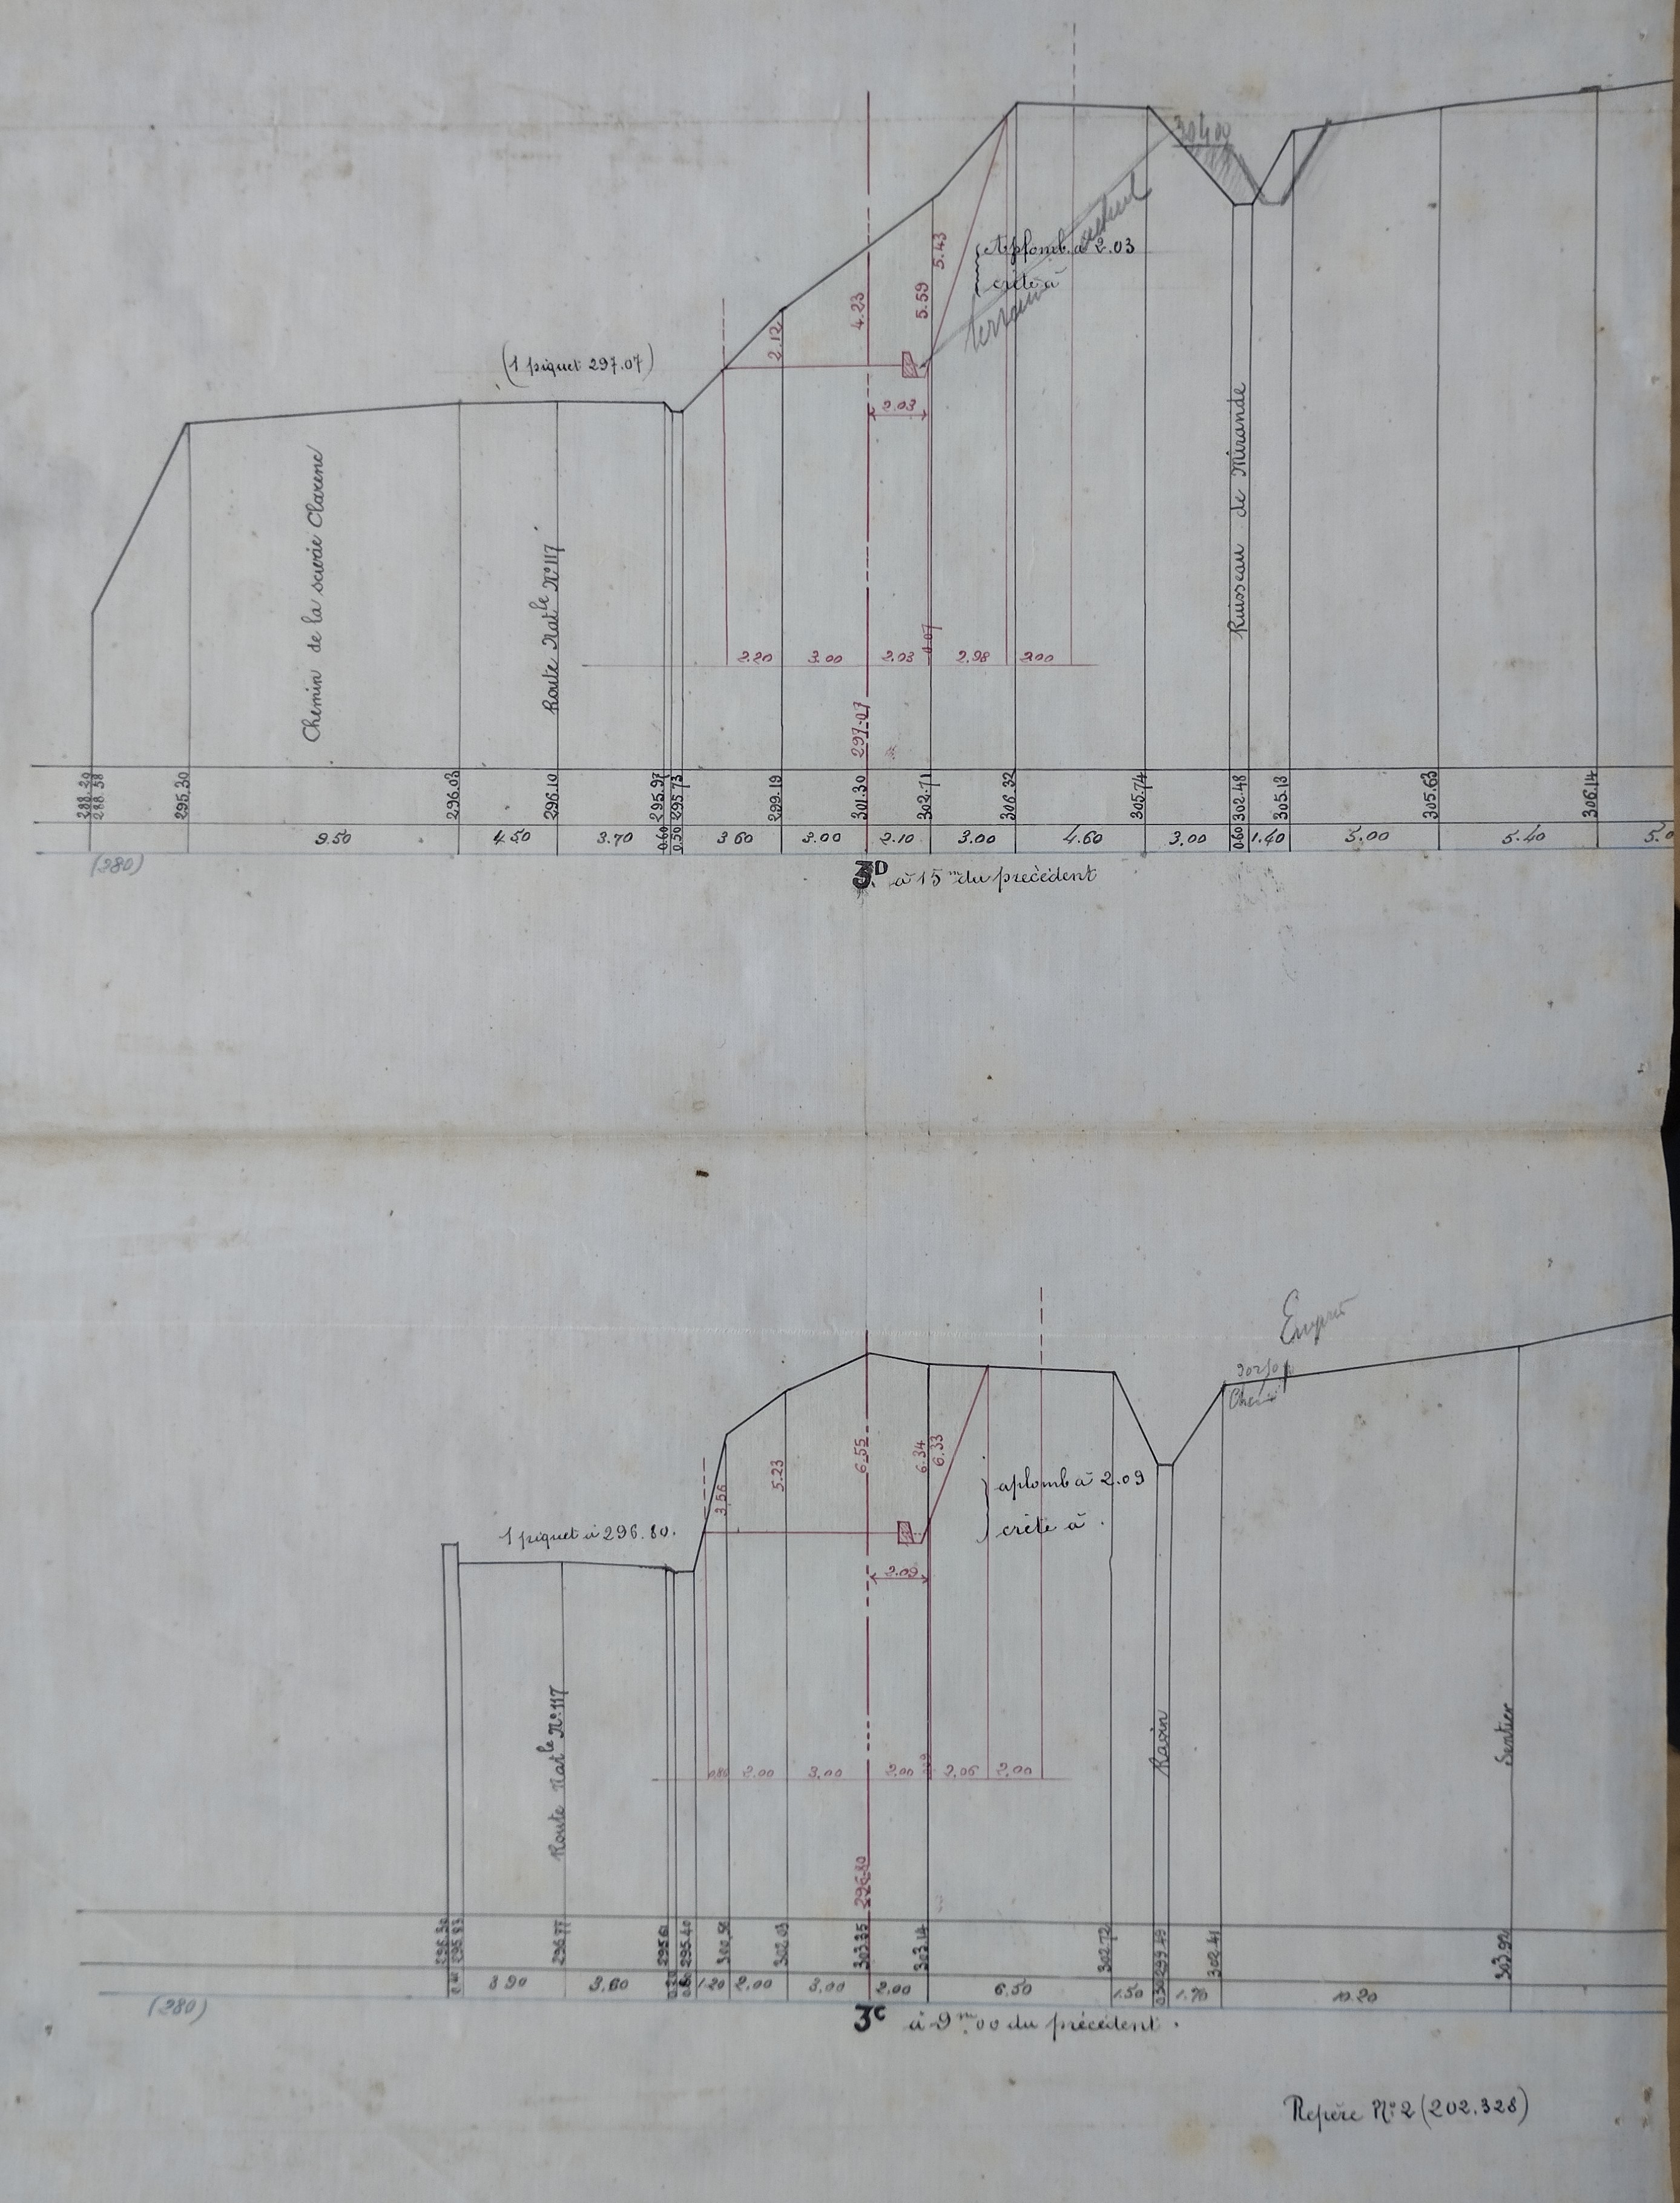 304.00
5.43
aplomb à 2.03
crête à
terrain actuel
5.59
4.23
2.12
(1 piquet 297.07)
2.03
Chemin de la scierie Clarenc
Route Nat.le N° 117
Ruisseau de Mirande
2.20 3.00 2.03 0.07 2.98 2.00
297.07
288.29 288.58 295.30 296.03 296.10 295.97 295.73 299.19 301.30 302.71 306.32 305.74 302.48 305.13 305.63 306.14
9.50 4.50 3.70 0.60 0.50 3.60 3.00 2.10 3.00 4.60 3.00 0.60 1.40 5.00 5.40 5.0
(280)
3D à 15m du précédent
302.50
3.56
5.23
6.55
6.34
6.33
aplomb à 2.09
crête à .
1 piquet à 296.80.
2.09
Route Nat.le N° 117
Ravin
Sentier
0.86 2.00 3.00 2.00 2.06 2.00
296.80
296.30 295.83 296.77 295.61 295.40 300.36 302.03 303.35 303.14 302.72 299.49 302.41 303.92
3.90 3.60 1.20 2.00 3.00 2.00 6.50 1.50 0.50 1.70 10.20
(280)
3C à 9m.00 du précédent .
Repère N° 2 (202.328)